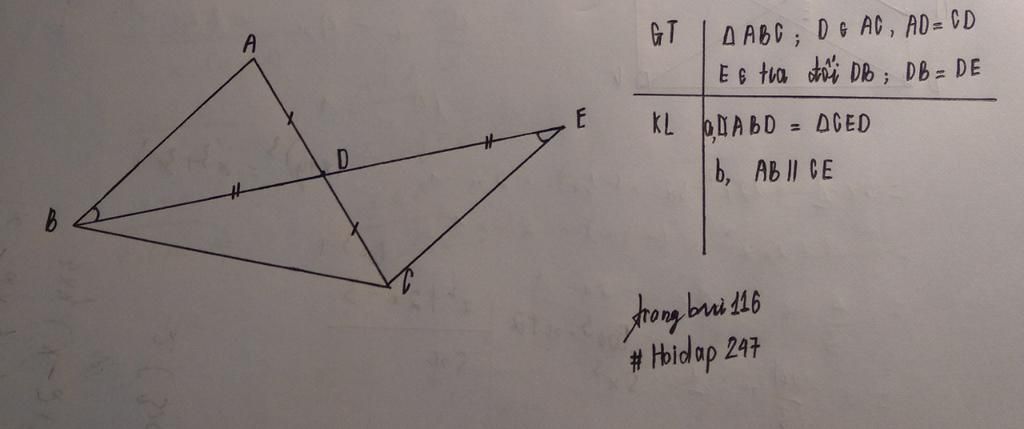 A
B
C
D
E
GT
ΔABC; D ∈ AC, AD = CD
E ∈ tia đối DB; DB = DE
KL
a, ΔABD = ΔCED
b, AB // CE
trongbui116
# Hoidap 247